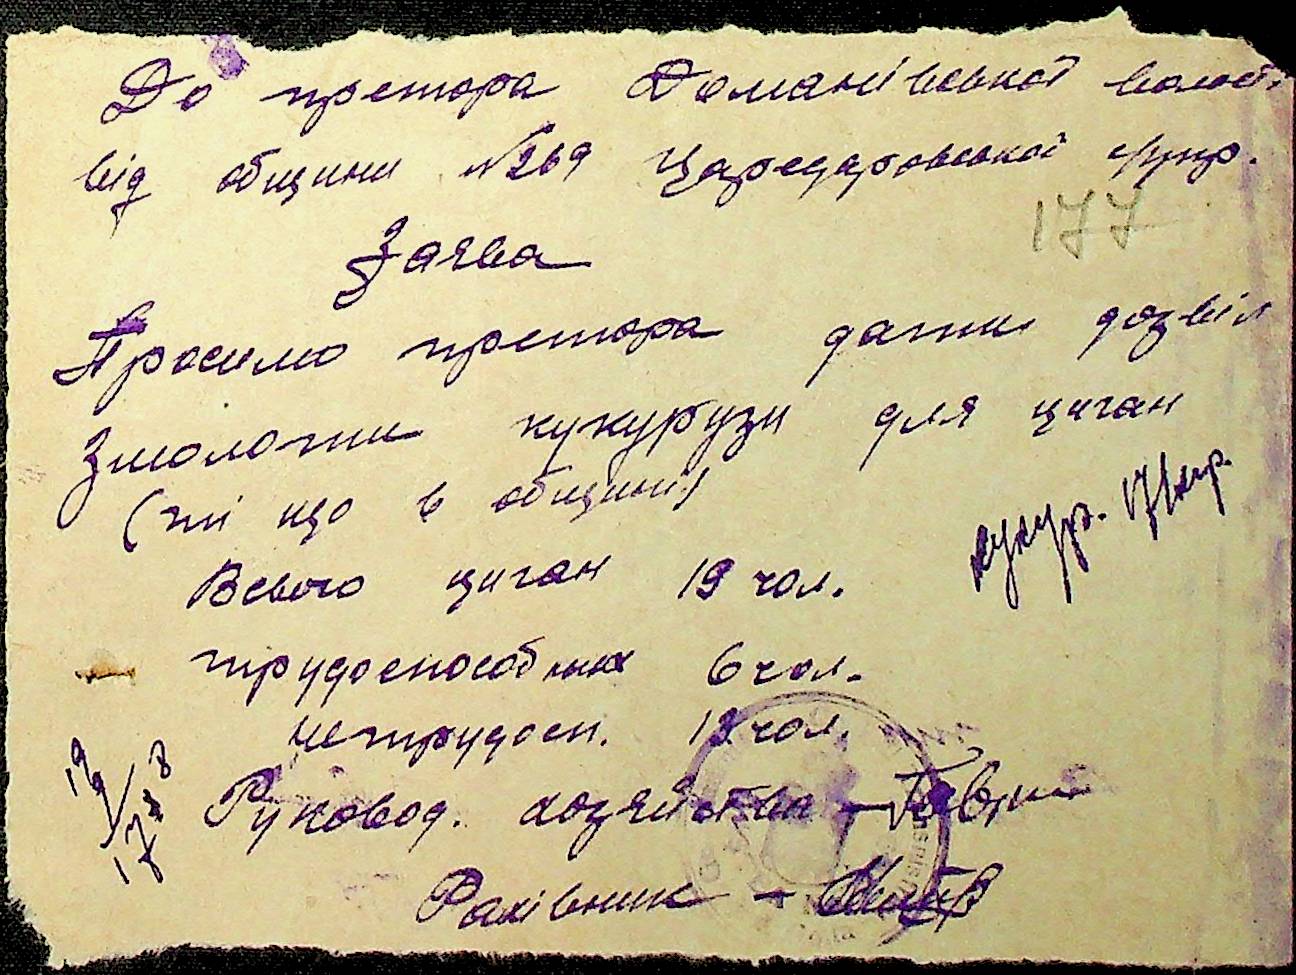 До претора Доманівської волості
від общини №269 Царедаровської
177
Заява
Просимо претора дати дозвіл
змолоти кукурузи для циган
(ті що в общині)
кукур. 17 кгр.
Всього циган 19 чол.
трудоспособних 6 чол.
нетрудосп. 13 чол.
Руковод. хозяйства –
Рахівник –